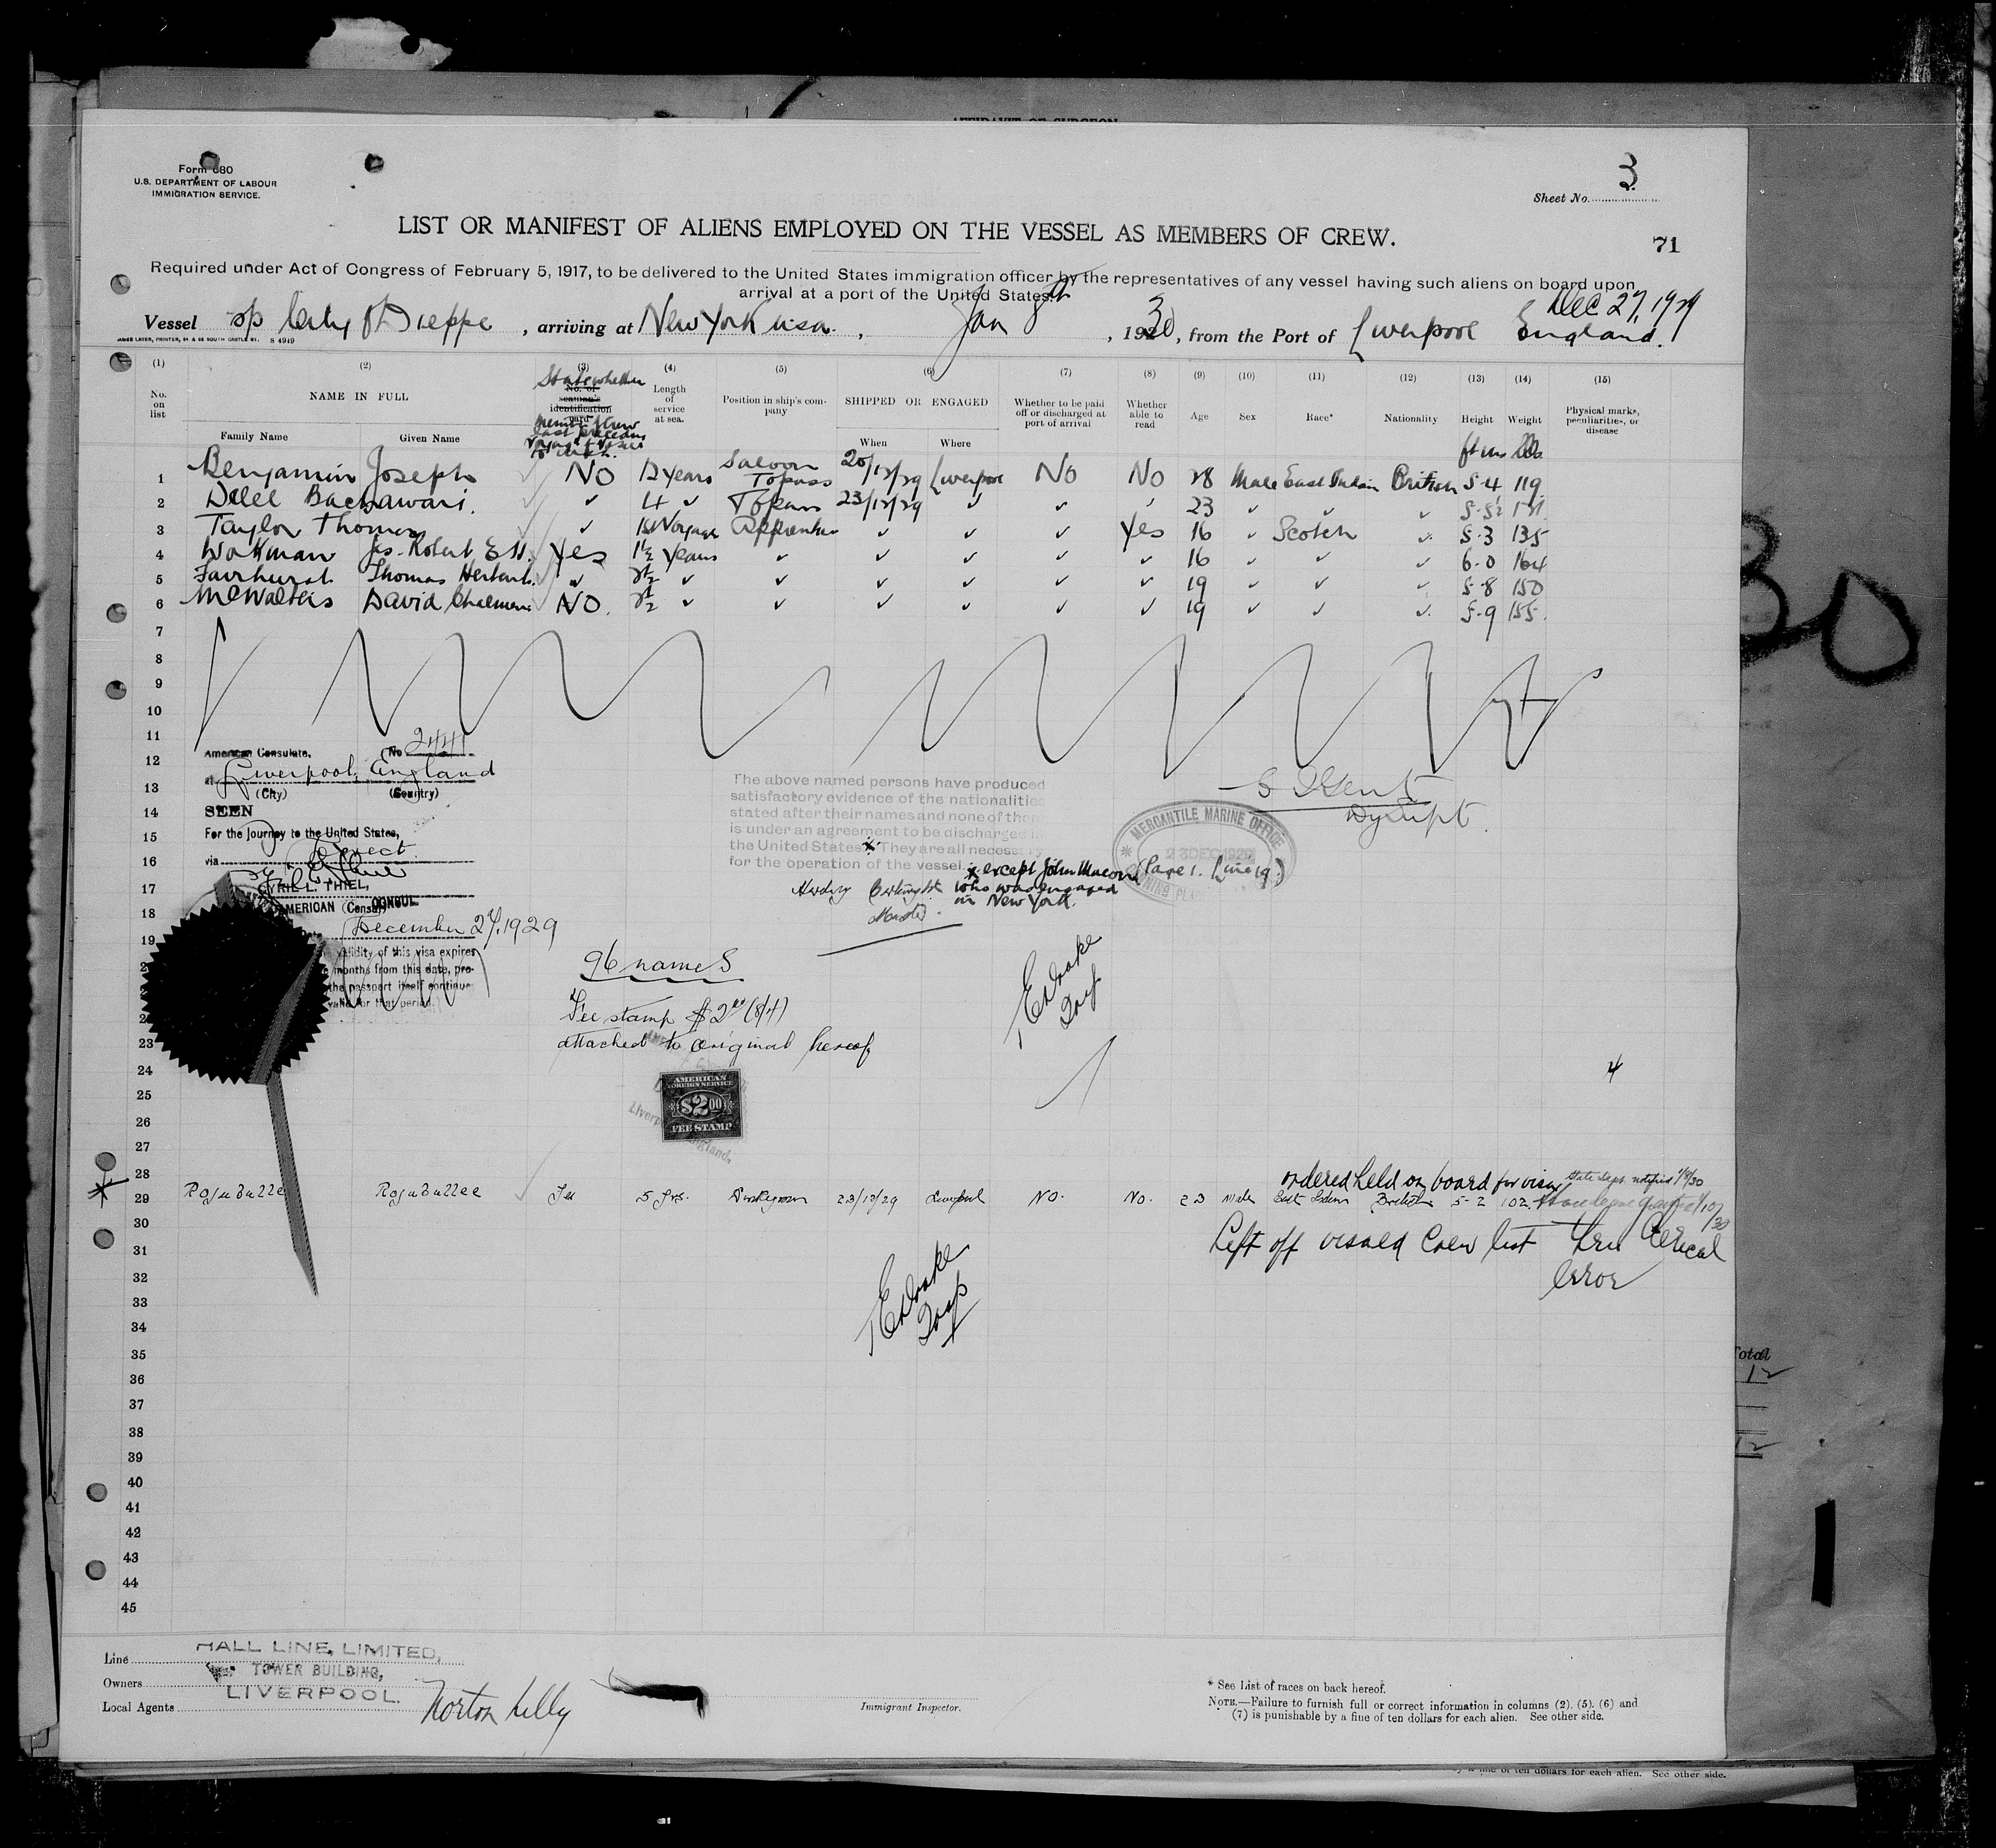 AFFIDAVIT OF SURGEON
Form 680
U.S. DEPARTMENT OF LABOUR
IMMIGRATION SERVICE.
Sheet No. 3
LIST OR MANIFEST OF ALIENS EMPLOYED ON THE VESSEL AS MEMBERS OF CREW.
71
Required under Act of Congress of February 5, 1917, to be delivered to the United States immigration officer by the representatives of any vessel having such aliens on board upon
arrival at a port of the United States.
Dec 27, 1929
Vessel City of Dieppe, arriving at New York usa., Jan 8th, 1930, from the Port of Liverpool England.
JAMES LAVER, PRINTER, 54 & 56 SOUTH CASTLE ST. S 4949
(1) (2) (3) (4) (5) (6) (7) (8) (9) (10) (11) (12) (13) (14) (15)
No. on list
NAME IN FULL
Family Name Given Name
State whether
No. of seaman's identification card
Length of service at sea.
Position in ship's company
SHIPPED OR ENGAGED
When Where
Whether to be paid off or discharged at port of arrival
Whether able to read
Age Sex Race* Nationality Height Weight
Physical marks, peculiarities, or disease
ft ins lbs.
1 Benjamin Joseph NO 12 years Saloon Topass 20/12/29 Liverpool NO NO 28 Male East Indian British 5-4 119
2 ✓ 4 ✓ Topass 23/12/29 ✓ ✓ ✓ 23 ✓ ✓ ✓
3 Taylor Thomas ✓ 1st Voyage Apprentice ✓ ✓ ✓ Yes 16 ✓ Scotch ✓ 5-3 135
4 Workman Jas. Robert E H. Yes 1½ years ✓ ✓ ✓ ✓ ✓ 16 ✓ ✓ ✓ 6-0 164
5 Fairhurst Thomas Herbert. ✓ 2½ ✓ ✓ ✓ ✓ ✓ ✓ 19 ✓ ✓ ✓ 5-8 150
6 McWalters David Chalmers NO. 2½ ✓ ✓ ✓ ✓ ✓ ✓ 19 ✓ ✓ ✓ 5-9 155.
7
8
9
10
11
12
American Consulate, No 2441
at Liverpool, England
13
(City) (Country)
14
SEEN
15
For the Journey to the United States,
16
via Direct
CYRIL L. THIEL,
17
AMERICAN CONSUL
18
December 27, 1929
19
validity of this visa expires
months from this date, pro-
the passport itself continue
valid for that period.)
The above named persons have produced
satisfactory evidence of the nationalities
stated after their names and none of them
is under an agreement to be discharged in
the United States. They are all necessary
for the operation of the vessel. x except John Macom (Page 1. Line 19.)
who was engaged
in New York.
Master.
Dy Supt.
MERCANTILE MARINE OFFICE
23 DEC 1929
96 names
Fee stamp $2.00 (8/4)
attached to original hereof
AMERICAN
FOREIGN SERVICE
$2.00
FEE STAMP
Liverpool, England.
E Drake
Insp
4
23
24
25
26
27
28
ordered held on board for visa State Dept. notified 1/9/30
29 5 yrs. 23/12/29 Liverpool NO. NO. 23 Male East Indian British 5-2 102.
Left off visaed Crew list thru Clerical
error
30
31
32
33
E Drake
Insp
34
35
36
37
38
39
40
41
42
43
44
45
Total
12
12
Line HALL LINE, LIMITED,
Owners TOWER BUILDING,
LIVERPOOL.
Local Agents Norton Lilly
Immigrant Inspector.
* See List of races on back hereof.
NOTE.—Failure to furnish full or correct information in columns (2), (5), (6) and
(7) is punishable by a fine of ten dollars for each alien. See other side.
ten dollars for each alien. See other side.